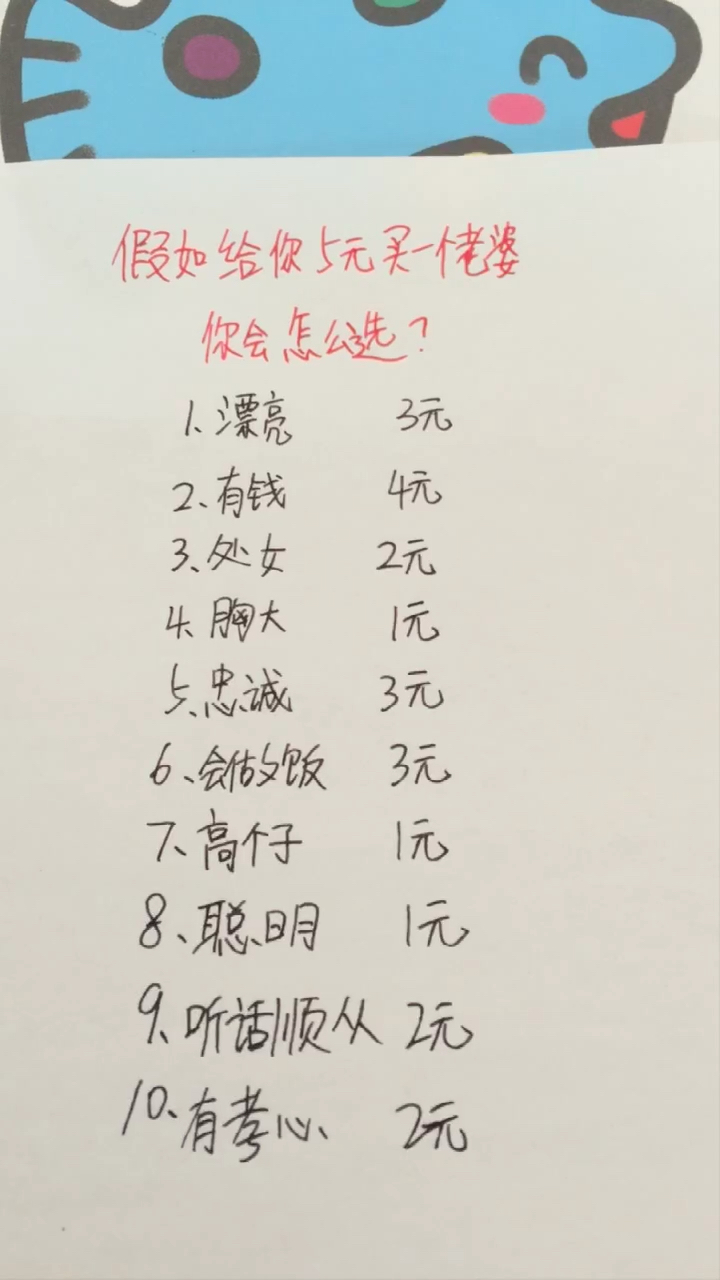 假如给你5元买一个老婆
你会怎么选？
1、漂亮 3元
2、有钱 4元
3、处女 2元
4、胸大 1元
5、忠诚 3元
6、会做饭 3元
7、高个子 1元
8、聪明 1元
9、听话顺从 2元
10、有孝心 2元